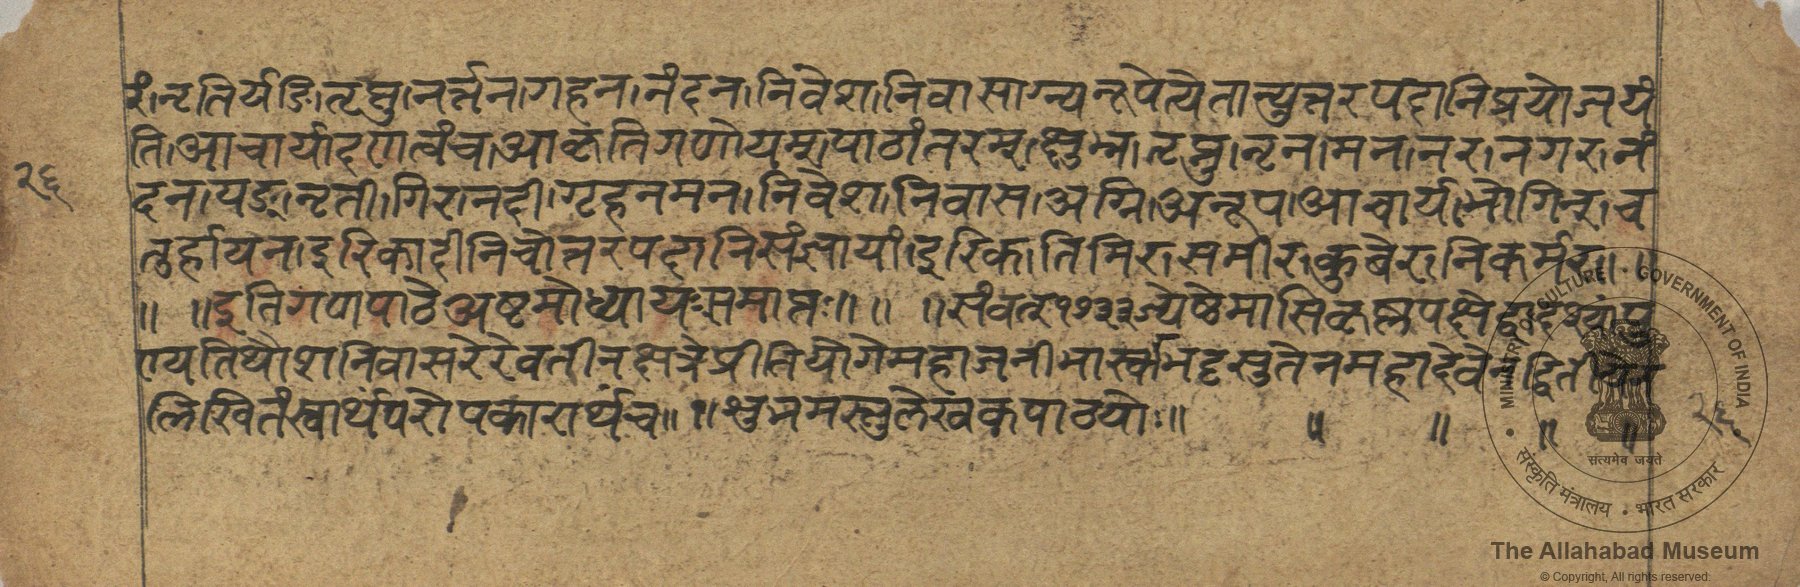 रांनृतिर्यङितृप्नुनर्त्तनगहनानंदनानिवेशानिवासाग्न्यनूपेत्येतान्युत्तरपदानिप्रयोजयं
तिआचार्यादणत्वंचआकृतिगणोयम्पाठांतरम्क्षुभ्नातृप्नुनृनमनानरानगरानं
दनायङ्नृतीगिरानदीगृहनमनानिवेशानिवासअग्निअनूपआचार्यभोगिन्च
तुर्हायनइरिकादीनिचोत्तरपदानिसंज्ञायांइरिकातिमिरासमीरकुबेरानिकर्मरा॥ ॥
॥ ॥इतिगणपाठेअष्टमोध्यायःसमाप्तः॥ ॥ ॥संवत्१७३३ज्येष्ठेमासिकृष्णपक्षेद्वादश्यांपु
ण्यतिथौशनिवासरेरेवतीनक्षत्रेप्रीतियोगेमहाजनीभास्करभट्टसुतेनमहादेवेनद्वितीयेन
लिखितंस्वार्थंपरोपकारार्थंच॥ ॥शुभमस्तुलेखकपाठयोः॥ ॥ ॥ ॥ ॥
२६
२६
MINISTRY OF CULTURE · GOVERNMENT OF INDIA
सत्यमेव जयते
संस्कृति मंत्रालय · भारत सरकार
The Allahabad Museum
© Copyright, All rights reserved.